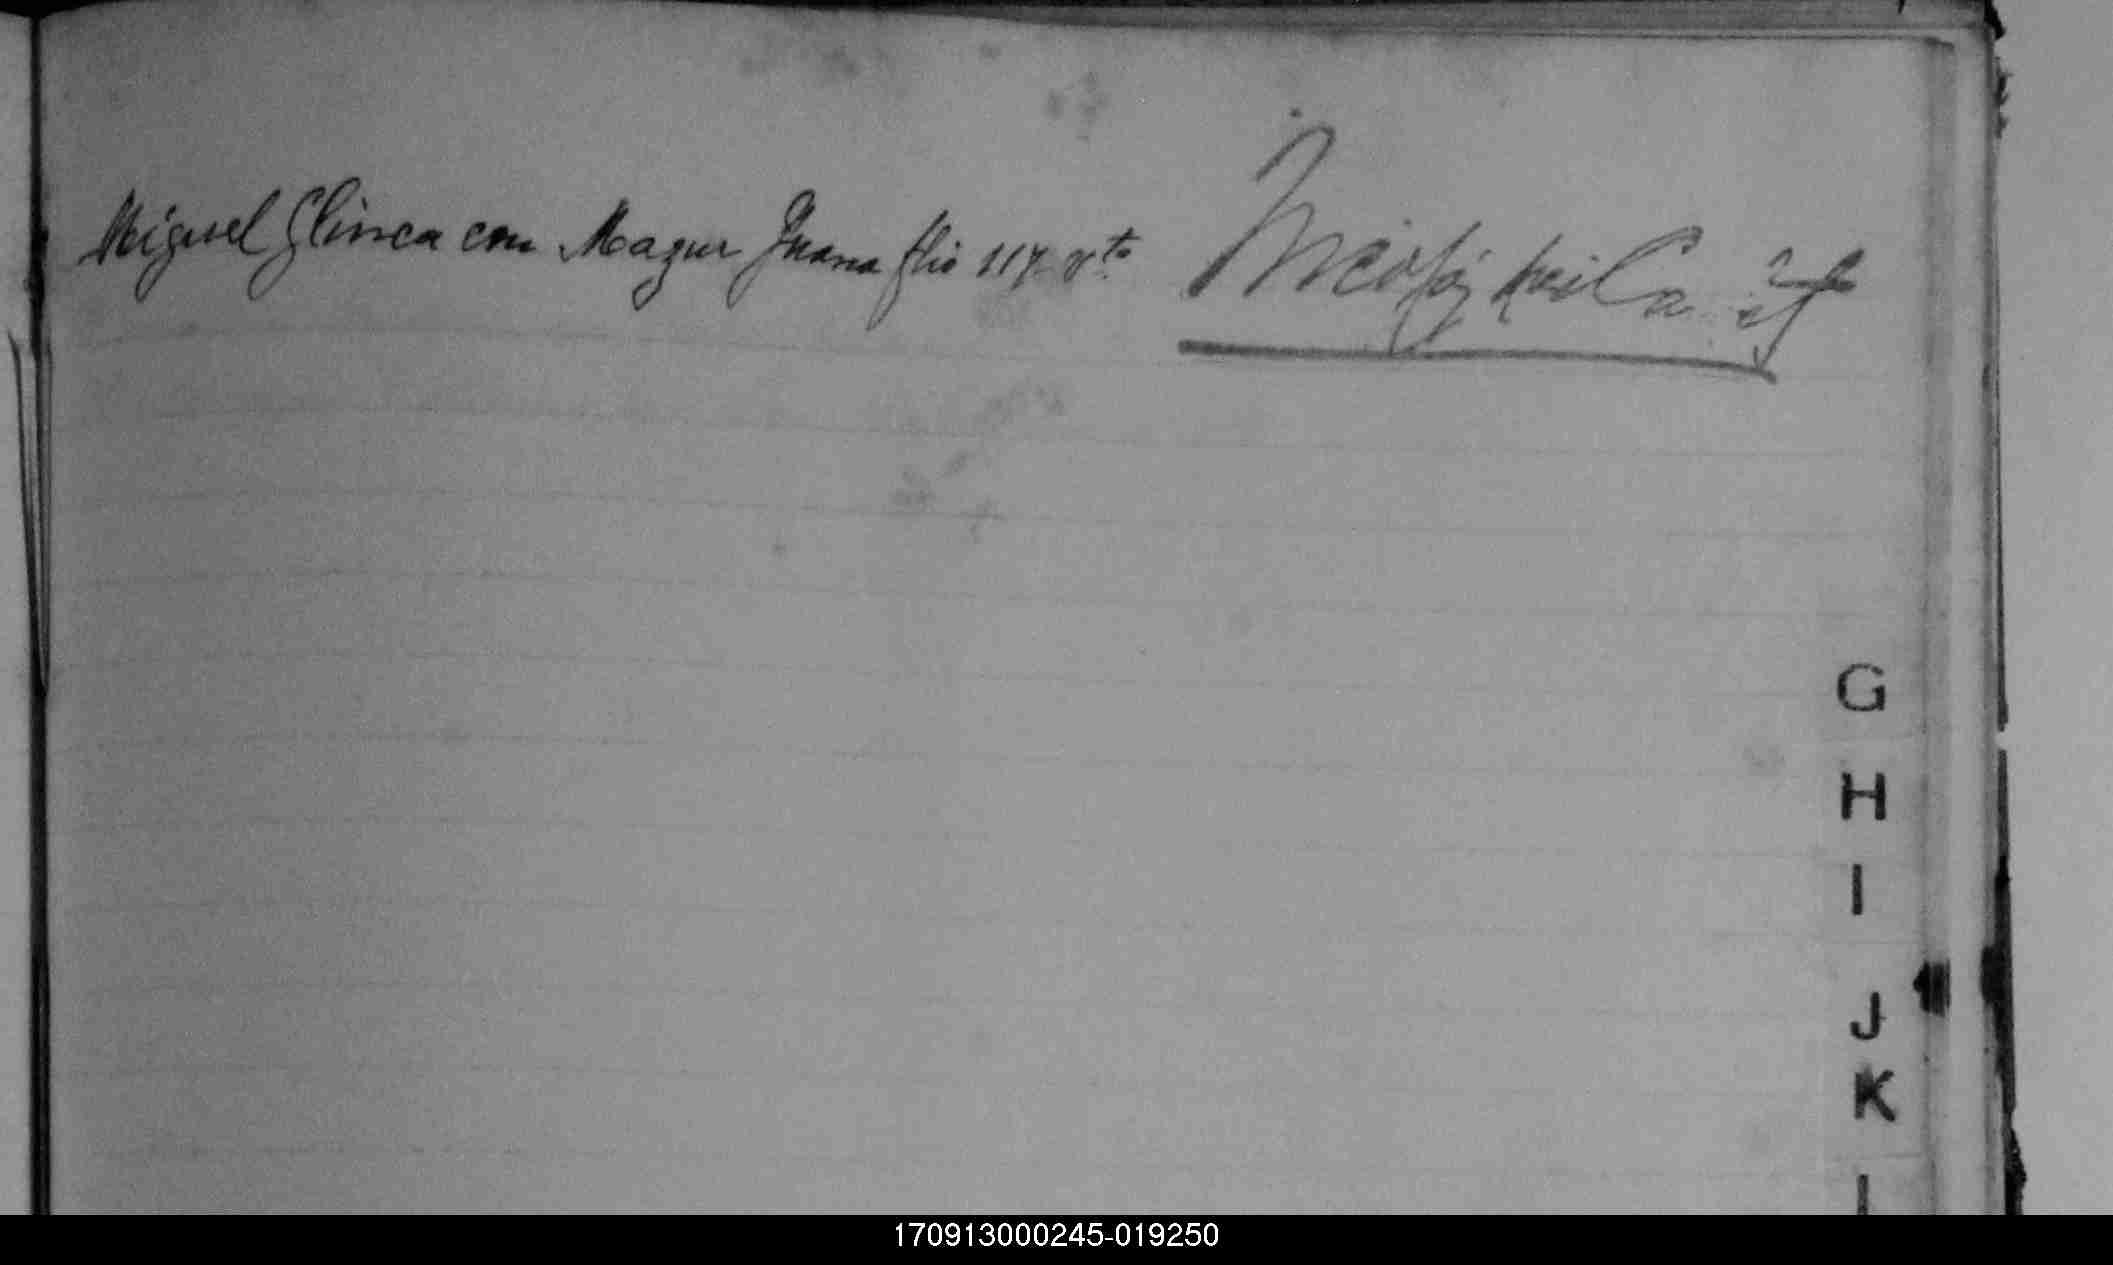 Miguel Glinca con Mazur Juana flio 117 vto
G
H
I
J
K
L
170913000245-019250